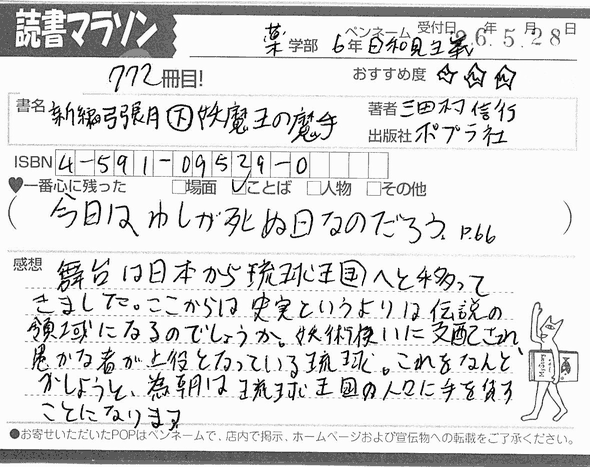 読書マラソン
薬学部 6年 ペンネーム 日和見主義 受付日 26年5月28日
772冊目!
おすすめ度 ☆☆☆
書名 新編弓張月 下 妖魔王の魔手
著者 三田村信行
出版社 ポプラ社
ISBN 4-591-09529-0
♥一番心に残った □場面 ☑ことば □人物 □その他
(今日は、わしが死ぬ日なのだろう。 P.66)
感想 舞台は日本から琉球王国へと移って
きました。ここからは史実というよりは伝説の
領域になるのでしょうか。妖術使いに支配され、
愚かな者が上役となっている琉球。これをなんと
かしようと、為朝は琉球王国の人々に手を貸す
ことになります
●お寄せいただいたPOPはペンネームで、店内で掲示、ホームページおよび宣伝物への転載をご了承ください。